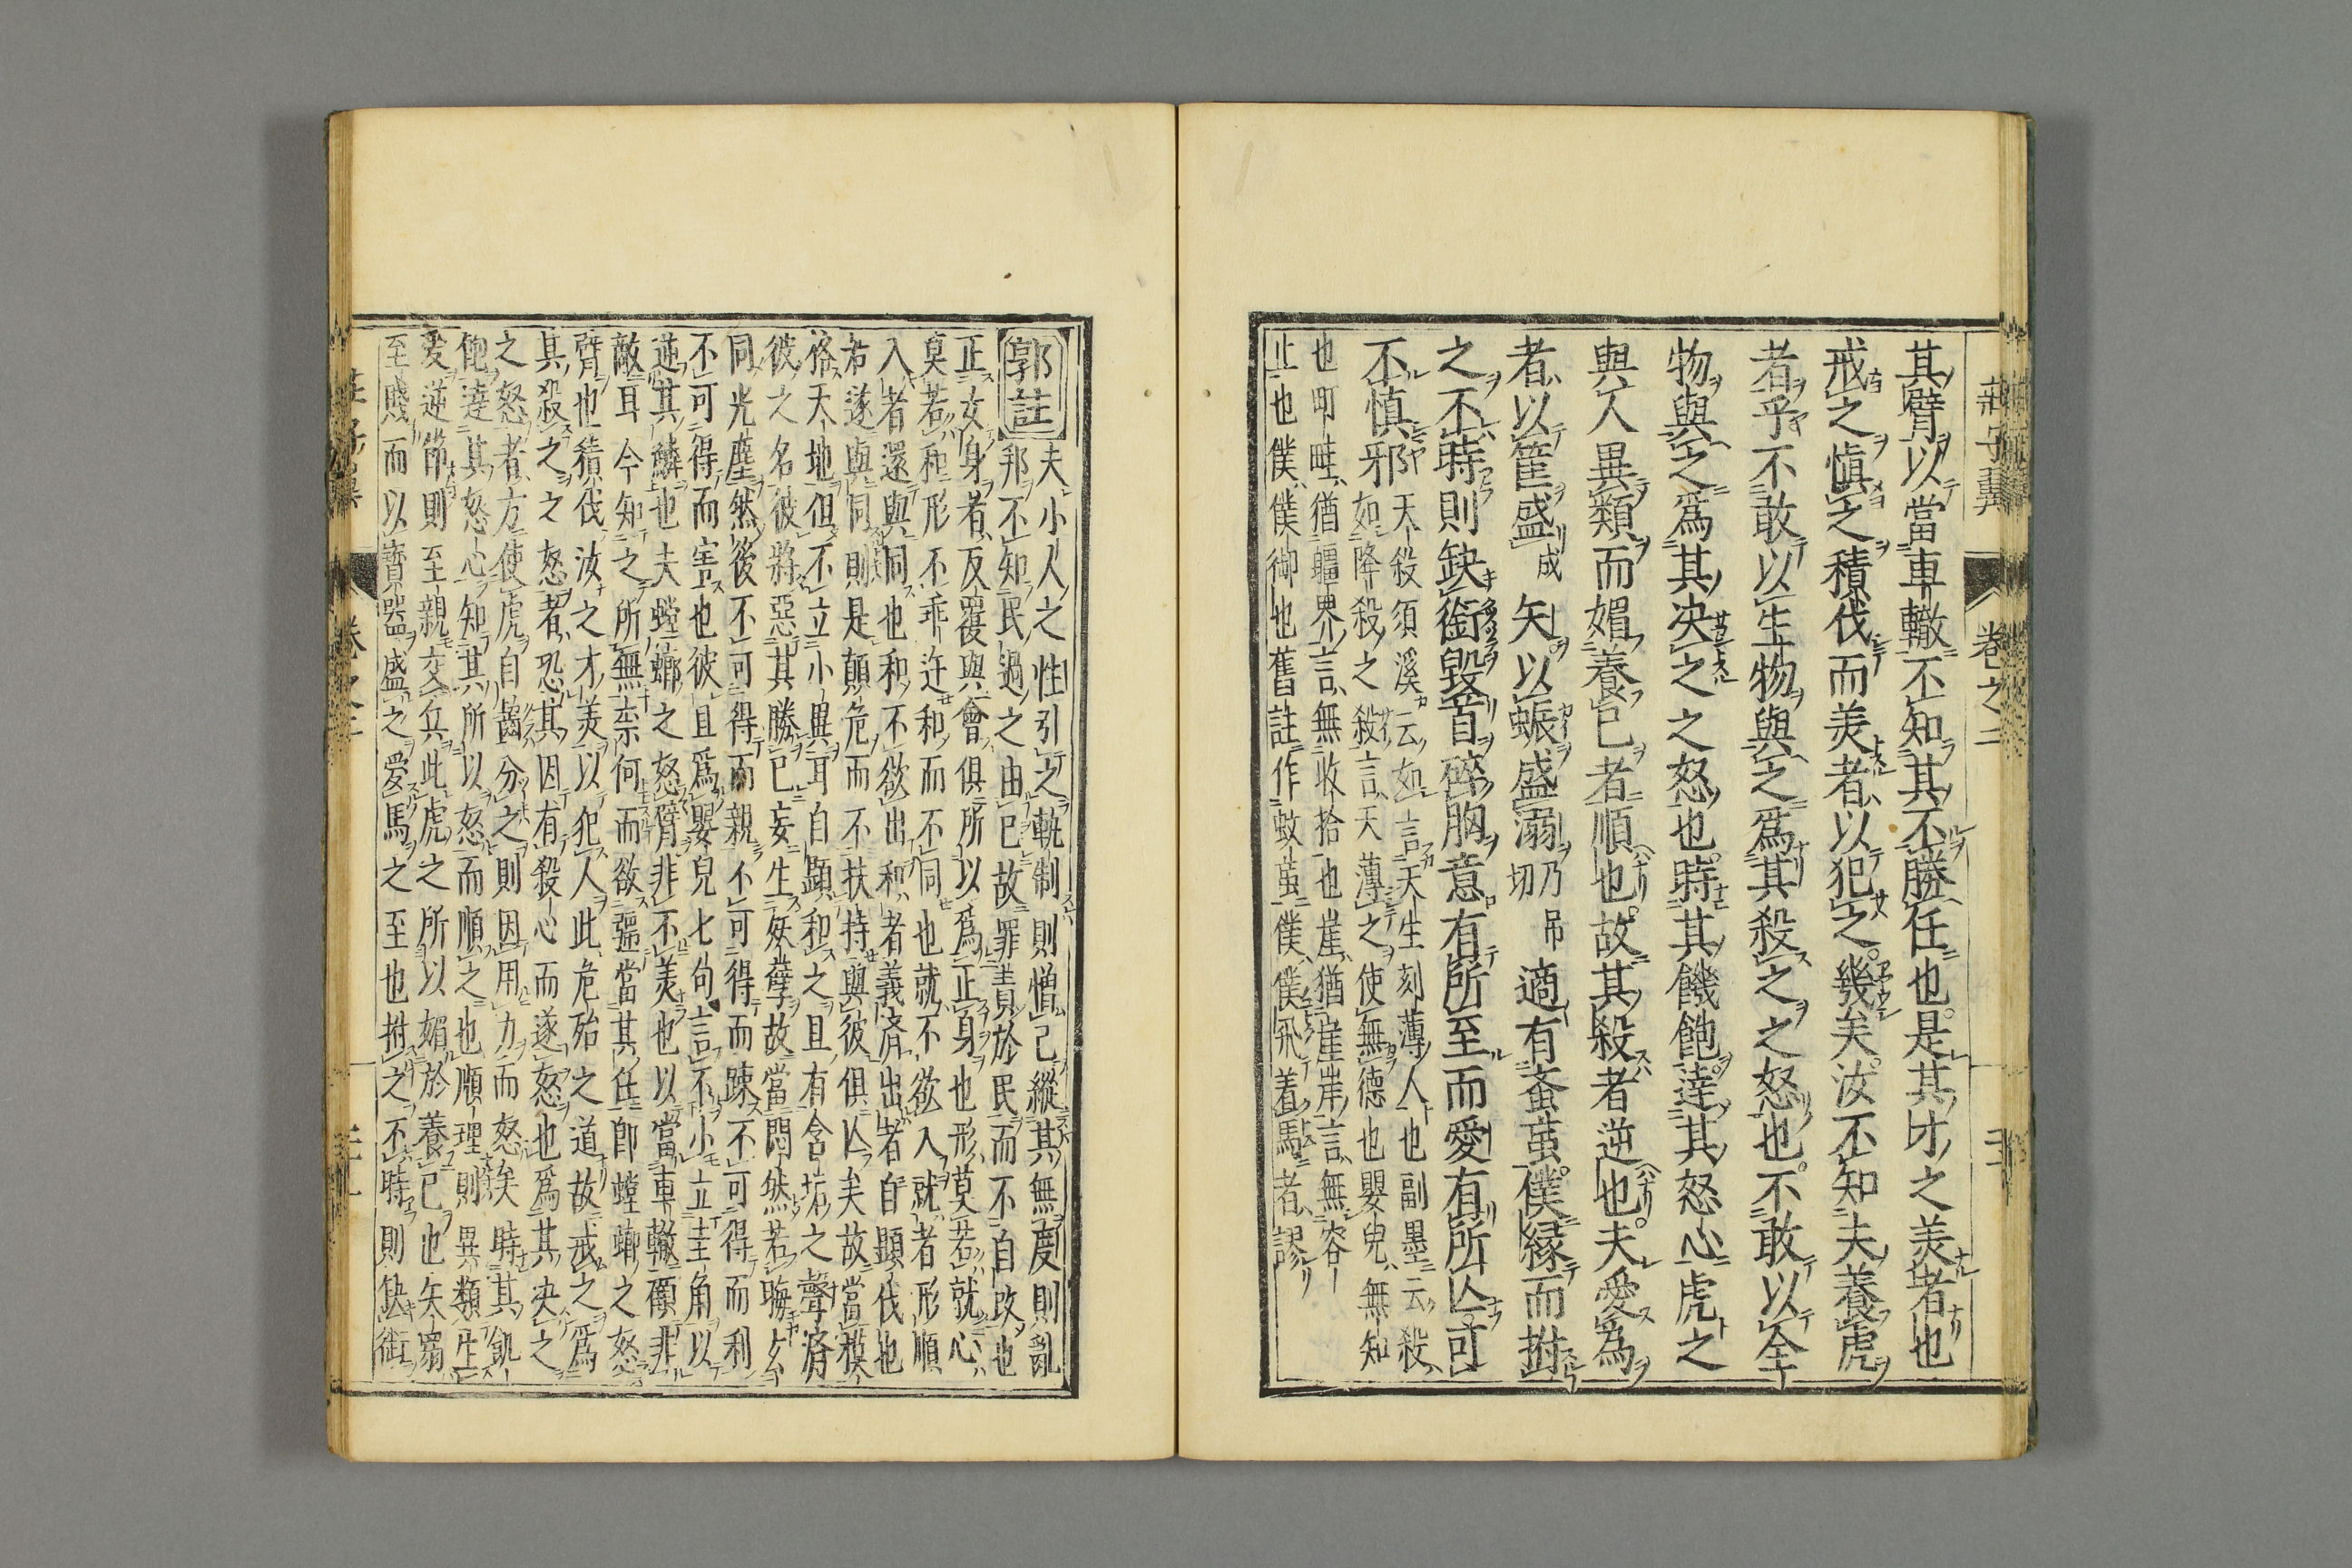 莊子翼 卷之二
其臂以當車轍不知其不勝任也是其才之美者也
戒之慎之積伐而美者以犯之幾矣汝不知夫養虎
者乎不敢以生物與之爲其殺之之怒也不敢以全
物與之爲其决之之怒也時其饑飽達其怒心虎之
與人異類而媚養己者順也故其殺者逆也夫愛為
者以筐盛成矢以蜄盛溺乃吊切適有蚉䖟僕緣而拊
之不時則缺銜毀首碎胸意有所至而愛有所亾可
不慎邪天殺須溪云如言天生刻薄人也副墨云殺
如降殺之殺言天薄之使無德也嬰兒無知
也町畦猶軀界言無收拾也崖猶崖岸言無容
止也僕僕御也舊註作蚊䖟僕僕飛着馬者謬
郭註夫小人之性引之軌制則憎己縱其無度則亂
邦不知民過之由已故罪責於民而不自改也
正女身者反覆與會俱所以爲正身也形莫若就心
莫若和形不乖迕和而不同也就不欲入就者形順
入者還與同也和不欲出和者義濟出者自顯伐也
若遂與同則是顛危而不扶持與彼俱亾矣故當模
格天地但不立小異耳自顯和之且有含垢之聲濟
彼之名彼將惡其勝己妄生妖孽故當悶然若晦
同光塵然後不可得而親不可得而踈不可得而利
不可得而害也彼且爲嬰兒七句言不小立圭角以
逆其鱗也夫螳螂之怒臂非不美也以當車轍顧非
敵耳今知之所無奈何而欲彊當其任即螳螂之怒
臂也積伐汝之才美以犯人此危殆之道故戒之爲
其殺之之怒者恐其因有殺心而遂怒也爲其决之
之怒者方使虎自齧分之則因用力而怒矣時其飢
飽達其怒心知其所以怒而順之也順理則異類生
愛逆節則至親交兵此虎之所以媚於養己也矢溺
至賤而以寶器盛之愛馬之至也拊之不時則缺銜